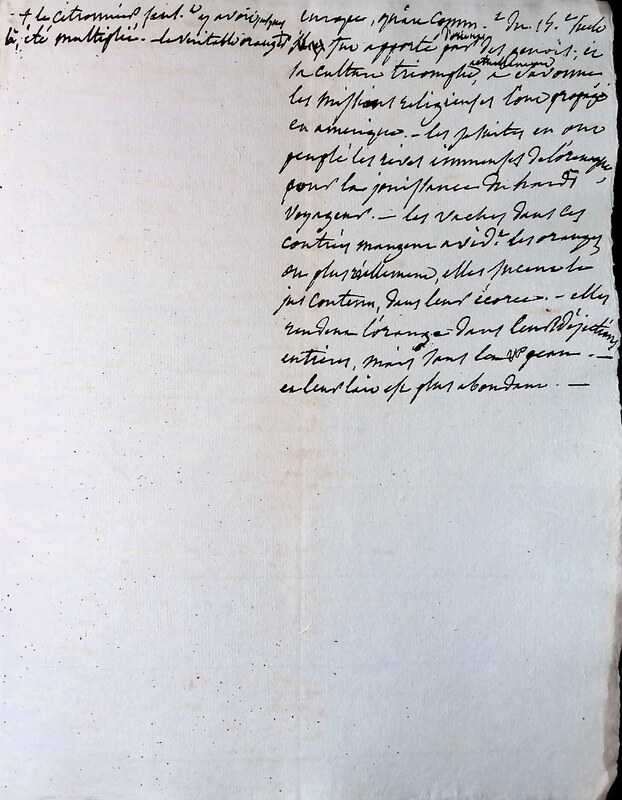 + le citronnier seul.t y avoit jusques
là, été multiplié. – le véritable oranger
europe, qu'au comm.t du 15.e siècle
fut apporté d'orient par des génois, et
sa culture triomphe actuellement, à savonne
les missions religieuses l'ont propagé
en amérique. – les jésuites en ont
peuplé les rives immenses de l'orénoque,
pour la jouissance du hardi
voyageur. – les vaches dans ces
contrées mangent avid.t les oranges
ou plus réellement, elles sucent le
jus contenu, dans leur écorce. – elles
rendent l'orange dans leurs déjections
entières, mais sans leur peau. –
et leur lait est plus abondant. –